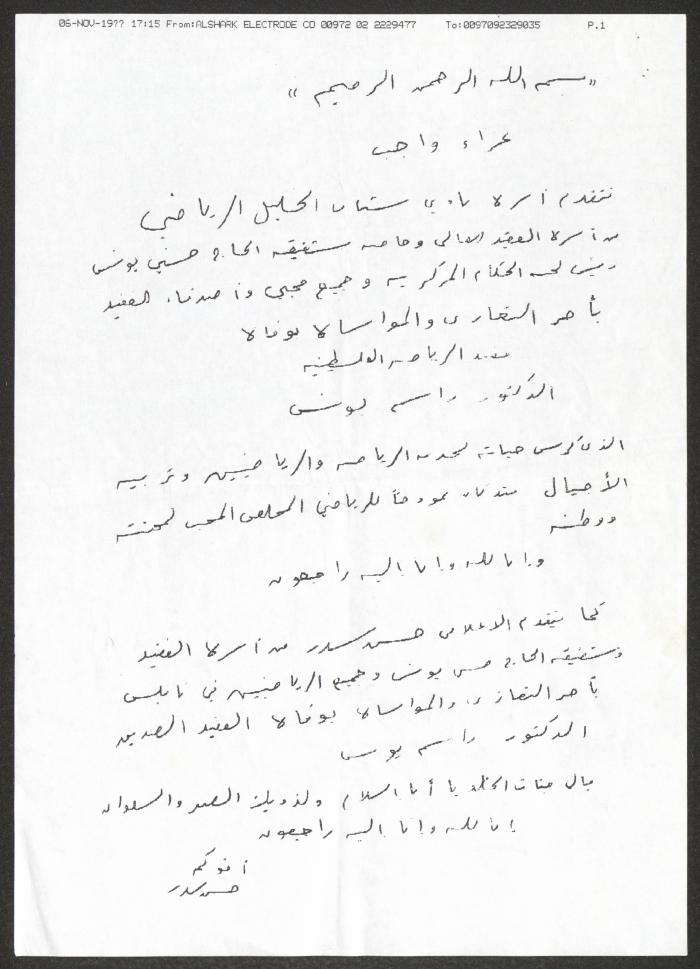 06-NOV-19?? 17:15 From:ALSHARK ELECTRODE CO 00972 02 2229477 To:0097092329035 P.1
" بسم الله الرحمن الرحيم "
عزاء واجب
تتقدم أسرة نادي شباب الخليل الرياضي
من أسرة الفقيد الغالي وخاصة شقيقه الحاج حسني يونس
رئيس لجنة الحكام المركزية وجميع محبي وأصدقاء الفقيد
بأحر التعازي والمواساة بوفاة
فقيد الرياضة الفلسطينية
الدكتور راسم يونس
الذي كرس حياته لخدمة الرياضة والرياضيين وتربية
الأجيال فقد كان نموذجاً للرياضي المخلص المحب لمهنته
ووطنه
وإنا لله وإنا إليه راجعون
كما يتقدم الاعلامي حسن سدر من أسرة الفقيد
وشقيقه الحاج حسني يونس وجميع الرياضيين في نابلس
بأحر التعازي والمواساة بوفاة الفقيد الصديق
الدكتور راسم يونس
إلى جنات الخلد يا أبا السلام ولذويك الصبر والسلوان
إنا لله وإنا إليه راجعون
أخوكم
حسن سدر